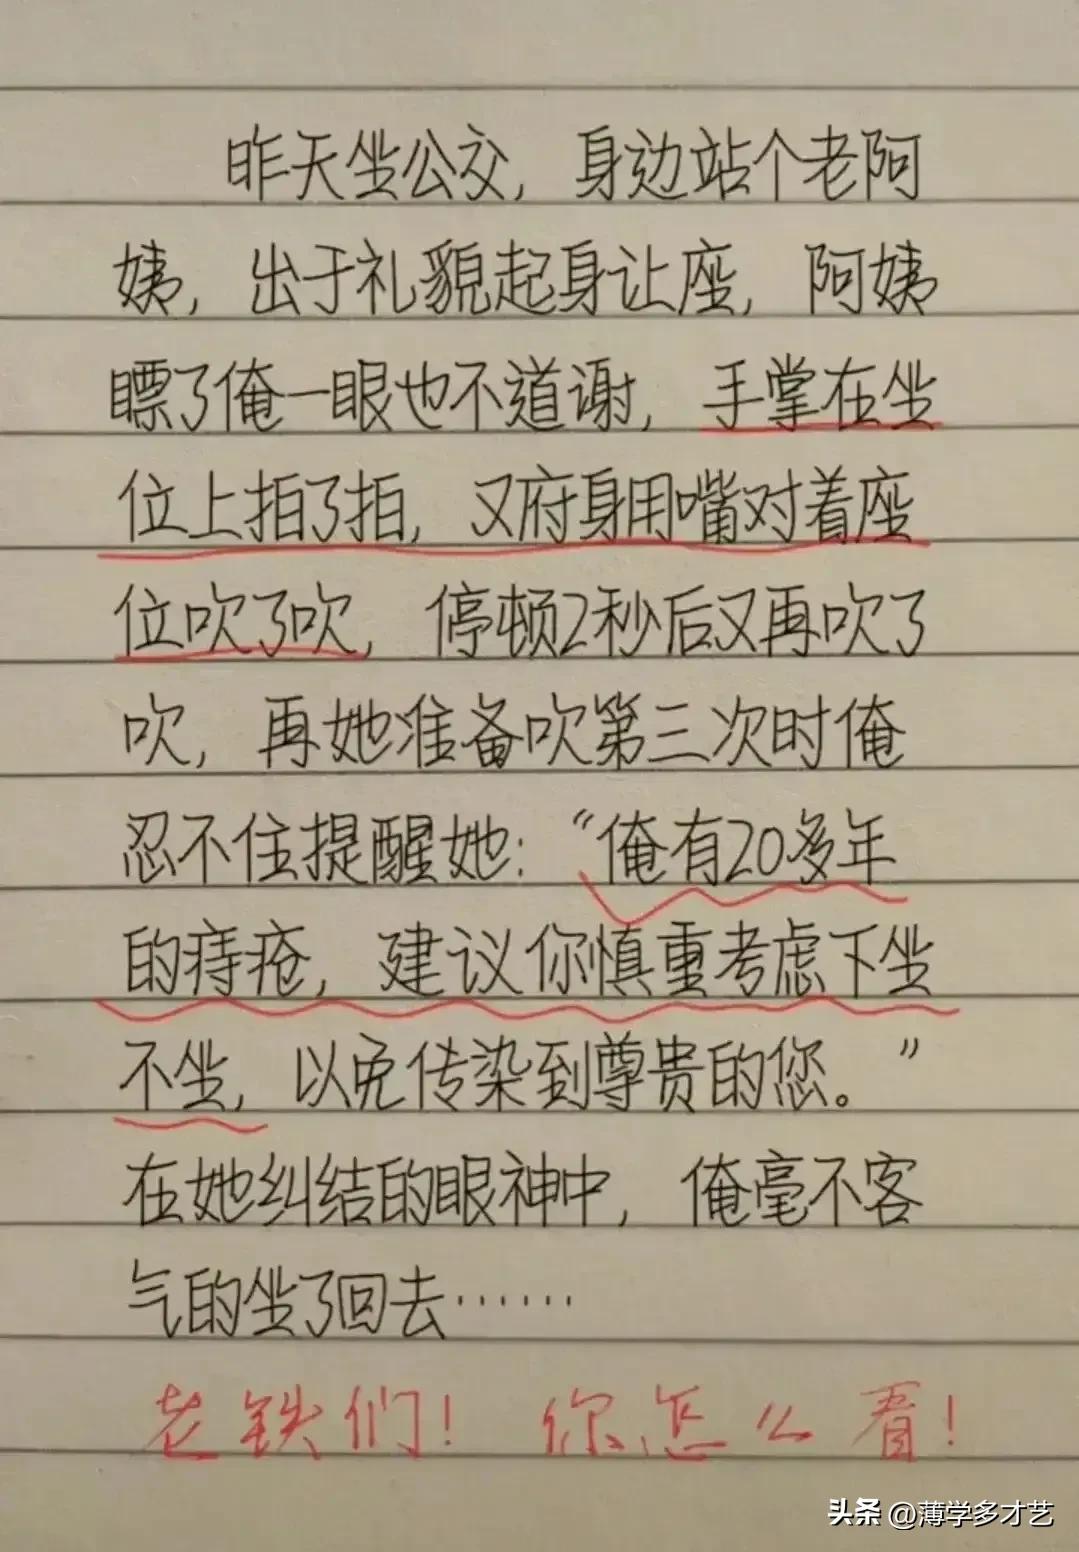 昨天坐公交，身边站个老阿
姨，出于礼貌起身让座，阿姨
瞟了俺一眼也不道谢，手掌在坐
位上拍了拍，又府身用嘴对着座
位吹了吹，停顿2秒后又再吹了
吹，再她准备吹第三次时俺
忍不住提醒她：“俺有20多年
的痔疮，建议你慎重考虑下坐
不坐，以免传染到尊贵的您。”
在她纠结的眼神中，俺毫不客
气的坐了回去……
老铁们！你怎么看！
头条 @薄学多才艺